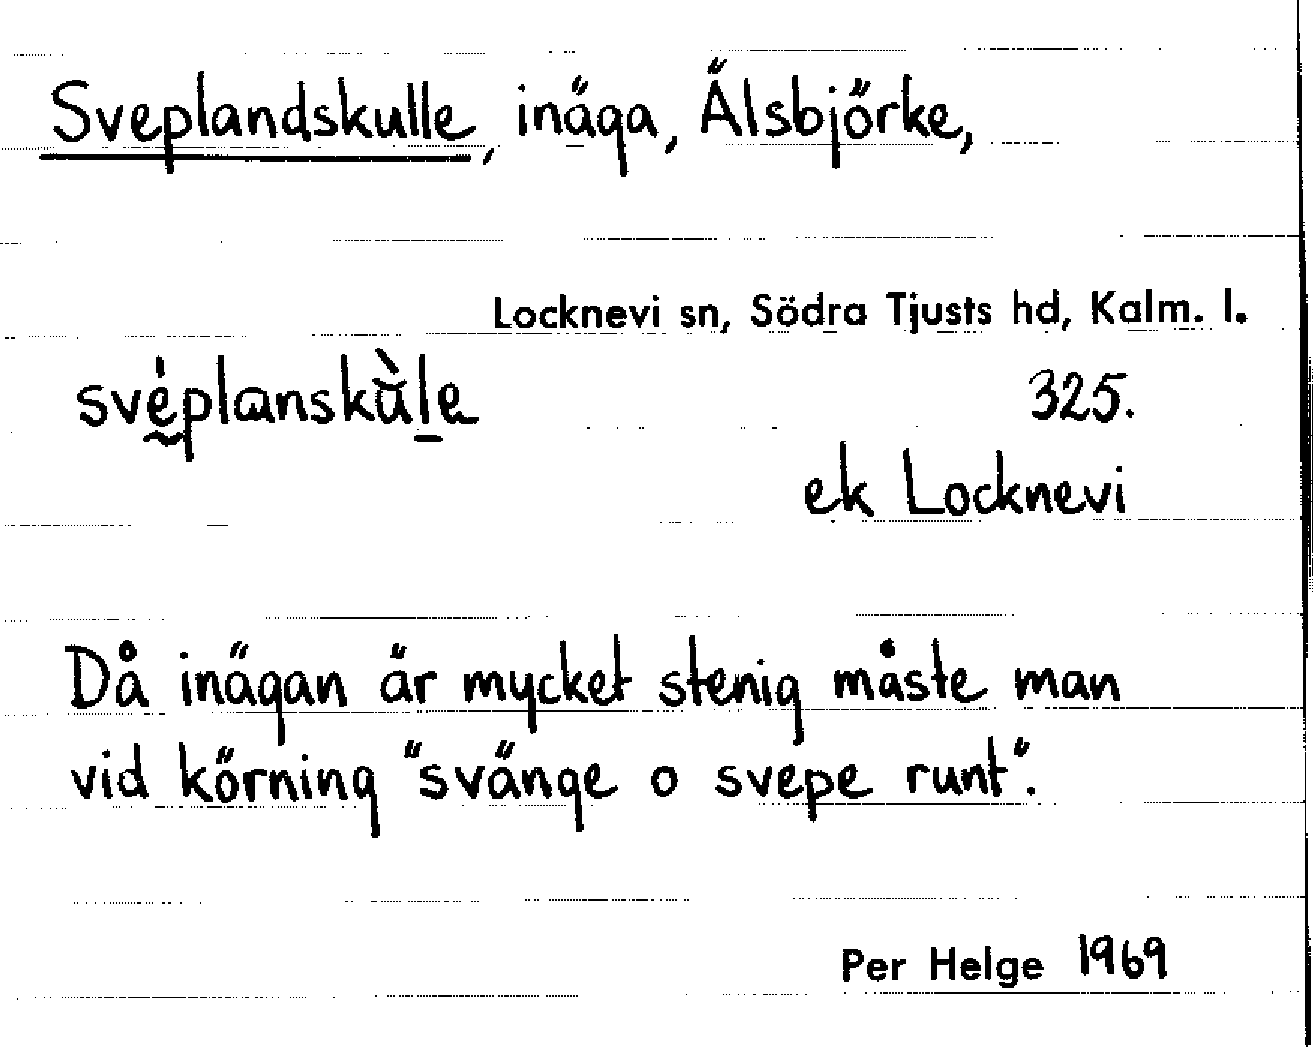 Sveplandskulle, inäga, Älsbjörke,
Locknevi sn, Södra Tjusts hd, Kalm. l.
svéplanskùle 325.
ek Locknevi
Då inägan är mycket stenig måste man
vid körning "svänge o svepe runt".
Per Helge 1969